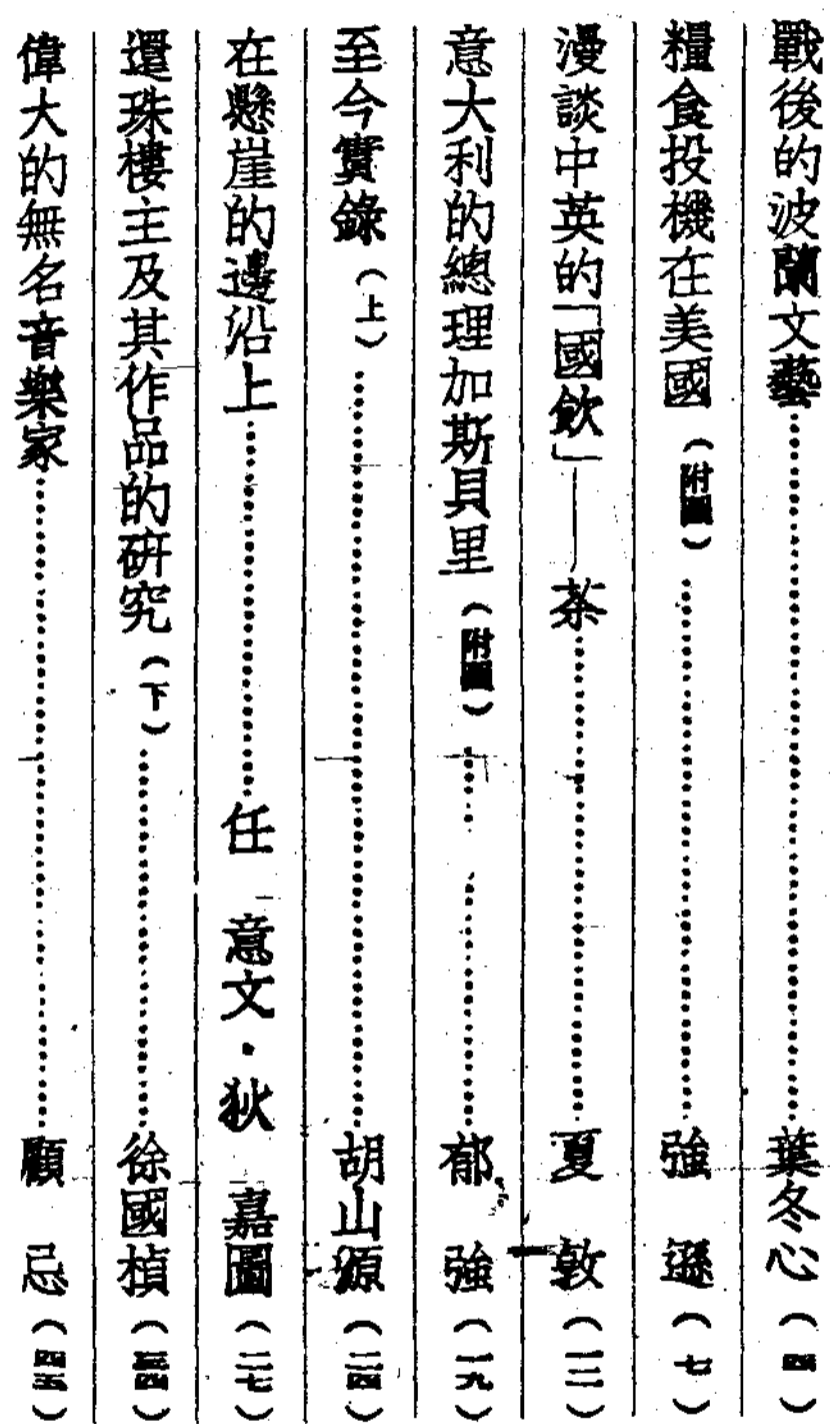 戰後的波蘭文藝……葉冬心(四)
糧食投機在美國(附圖)……強 遜(七)
漫談中英的「國飲」——茶……夏 敦(一二)
意大利的總理加斯貝里(附圖)……郁 強(一九)
至今實錄(上)……胡山源(二四)
在懸崖的邊沿上……任 意文·狄 嘉圖(二七)
還珠樓主及其作品的研究(下)……徐國楨(三四)
偉大的無名音樂家……顧 忌(四五)